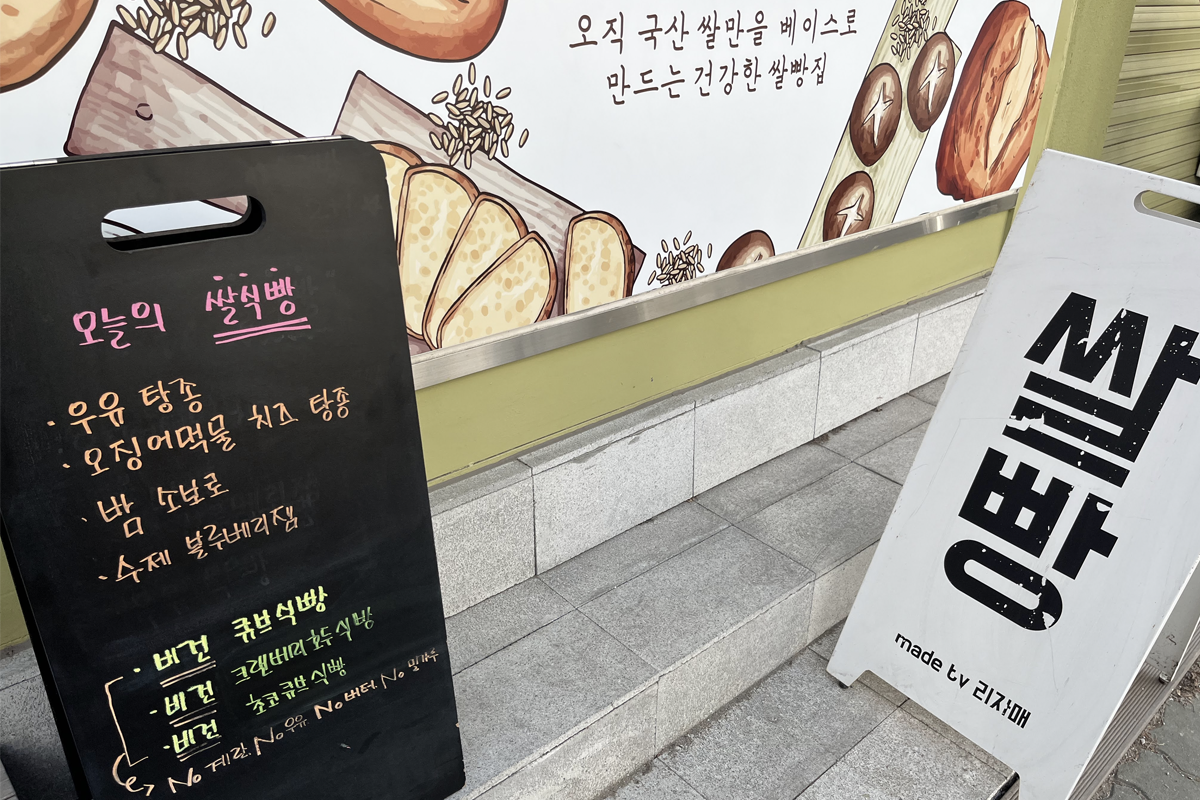 오직 국산 쌀만을 베이스로
만드는 건강한 쌀빵집
오늘의 쌀식빵
· 우유 탕종
· 오징어먹물 치즈 탕종
· 밤 소보로
· 수제 블루베리잼
· 비건 큐브식빵
· 비건 크랜베리호두식빵
· 비건 초코큐브식빵
No 계란. No 우유 No 버터. No 밀가루
쌀빵
made by 리자매